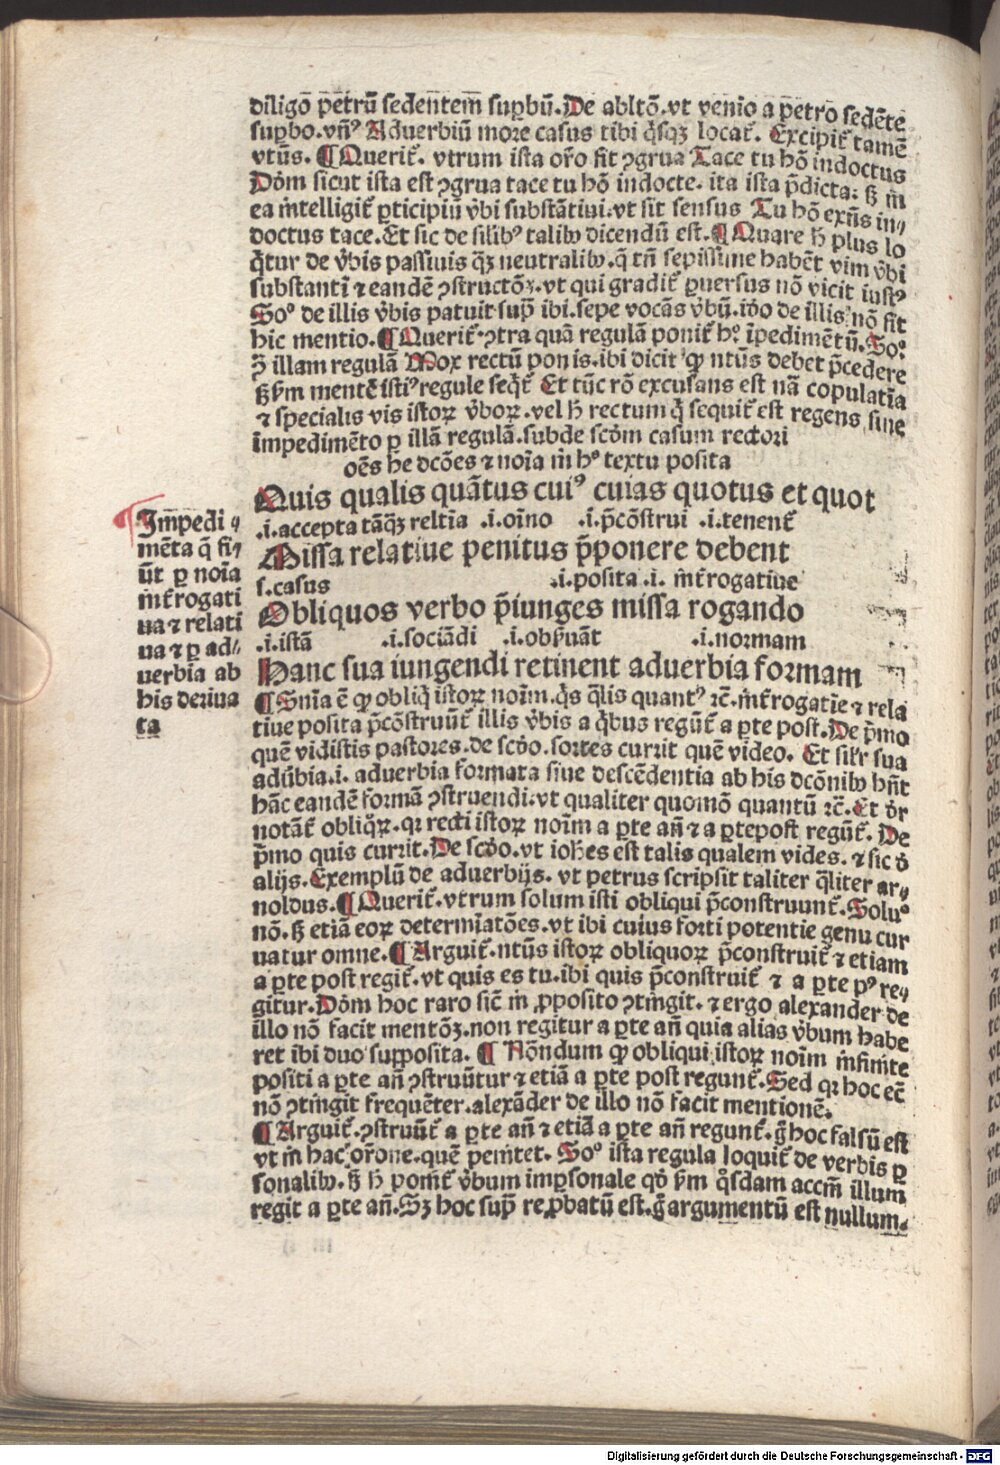 diligo͂ petrū sedentem̄ suꝑbū. De ablto͂. vt venio a petro sede͂te
suꝑbo. vn̄ꝰ Aduerbiū more casus tibi q̇sqꝫ locat̄. Excipit̄ tame͂
vtūs. ¶ Querit̄. vtrum ista or̄o sit ꝯgrua Tace tu ho͂ indoctus
Dōm sicut ista est ꝯgrua tace tu ho͂ indocte. ita ista p̄dicta: ß in̄
ea intelligit̄ ꝑticipiū v̄bi substātiui. vt sit sensus Tu ho͂ exn̄s in⸗
doctus tace. Et sic de silibꝰ talibꝰ dicendū est. ¶ Quare h̄ plus lo
q̄tur de v̄bis passiuis qꝫ neutralibꝰ. q̄ tn̄ sepissime habēt vim v̄bi
substanti ⁊ eandē ꝯstructōꝫ. vt qui gradit̄ ꝑuersus nō vicit iustꝰ
Soꝰ de illis v̄bis patuit sup̄ ibi. sepe vocās v̄bū. iō̄o de illis nō fit
hic mentio. ¶ Querit̄. ꝯtra quā regulā ponit̄ hꝰ īpedimētū. Soꝰ
ꝯ illam regulā Mox rectū ponis. ibi dicit ꝙ ntūs debet p̄cedere
ß ẜm mentē istiꝰ regule seq̄t̄ Et tūc rō excusans est nā copulatīa
⁊ specialis vis istoꝝ v̄boꝝ. vel h̄ rectum q̄ sequit̄ est regens sine
īmpedimēto ꝑ illā regulā. subde scōm casum rectori
oēs he dcōes ⁊ noīa in̄ hꝰ textu posita
Quis qualis quātus cuiꝰ cuias quotus et quot
.i. accepta tāqꝫ reltīa .i. oīno .i. p̄cōstrui .i. tenent̄
Missa relatiue penitus p̄ponere debent
s. casus .i. posita .i. int̄rogatiue
Obliquos verbo p̄iunges missa rogando
.i. istā .i. sociādi .i. obẜuāt .i. normam
Hanc sua iungendi retinent aduerbia formam
Im̄pedi⸗
mēta q̄ fi⸗
ūt ꝑ noīa
int̄rogati
ua ⁊ relati
ua ⁊ ꝑ ad⸗
uerbia ab
his deriua
ta
¶ Snīa ē ꝙ obliq̄ istoꝝ noīm. q̄s q̄lis quantꝰ ⁊c̄. int̄rogatīe ⁊ rela
tiue posita p̄cōstruūt̄ illis v̄bis a q̄bus regūt̄ a ꝑte post. De p̄mo
quē vidistis pastores. de scd̄o. sortes currit quē video. Et sil̄r sua
adūbia. i. aduerbia formata siue descēdentia ab his dcōnibꝰ hn̄t
hāc eandē formā ꝯstruendi. vt qualiter quomō quantū ⁊c̄. Et dr̄
notāt̄ obliq̄ꝝ. qꝛ recti istoꝝ noīm a ꝑte an̄ ⁊ a ꝑtepost regūt̄. De
p̄mo quis currit. De scd̄o. vt ioh̄es est talis qualem vides. ⁊ sic d̄
alijs. Exemplū de aduerbijs. vt petrus scripsit taliter q̄liter ar⸗
noldus. ¶ Querit̄. vtrum solum isti obliqui p̄construunt̄. Soluꝰ
nō. ß etiā eoꝝ determīatōes. vt ibi cuius forti potentie genu cur
uatur omne. ¶ Arguit̄. ntūs istoꝝ obliquoꝝ p̄construit̄ ⁊ etiam
a ꝑte post regit̄. vt quis es tu. ibi quis p̄construit̄ ⁊ a ꝑte pꝰ re⸗
gitur. Dōm hoc raro sic̄ in̄ ꝓposito ꝯtingit. ⁊ ergo alexander de
illo nō facit mentōꝫ. non regitur a ꝑte an̄ quia alias v̄bum habe
ret ibi duo supposita. ¶ Nōndum ꝙ obliqui istoꝝ noīm infinite
positi a ꝑte an̄ ꝯstruūtur ⁊ etiā a ꝑte post regunt̄. Sed qꝛ hoc ec̄
nō ꝯtingit frequēter. alexāder de illo nō facit mentionē.
¶ Arguit̄. ꝯstruūt̄ a ꝑte an̄ ⁊ etiā a ꝑte an̄ regunt̄. g̊ hoc falsū est
vt in hac or̄one. quē penitet. Soꝰ ista regula loquit̄ de verbis ꝑ
sonalibꝰ. ß h̄ ponit̄ v̄bum imꝑsonale qd̄ ẜm q̊sdam accm̄ illum
regit a ꝑte an̄. Sꝫ hoc sup̄ reꝓbatū est. g̊ argumentū est nullum.
Digitalisierung gefördert durch die Deutsche Forschungsgemeinschaft - DFG